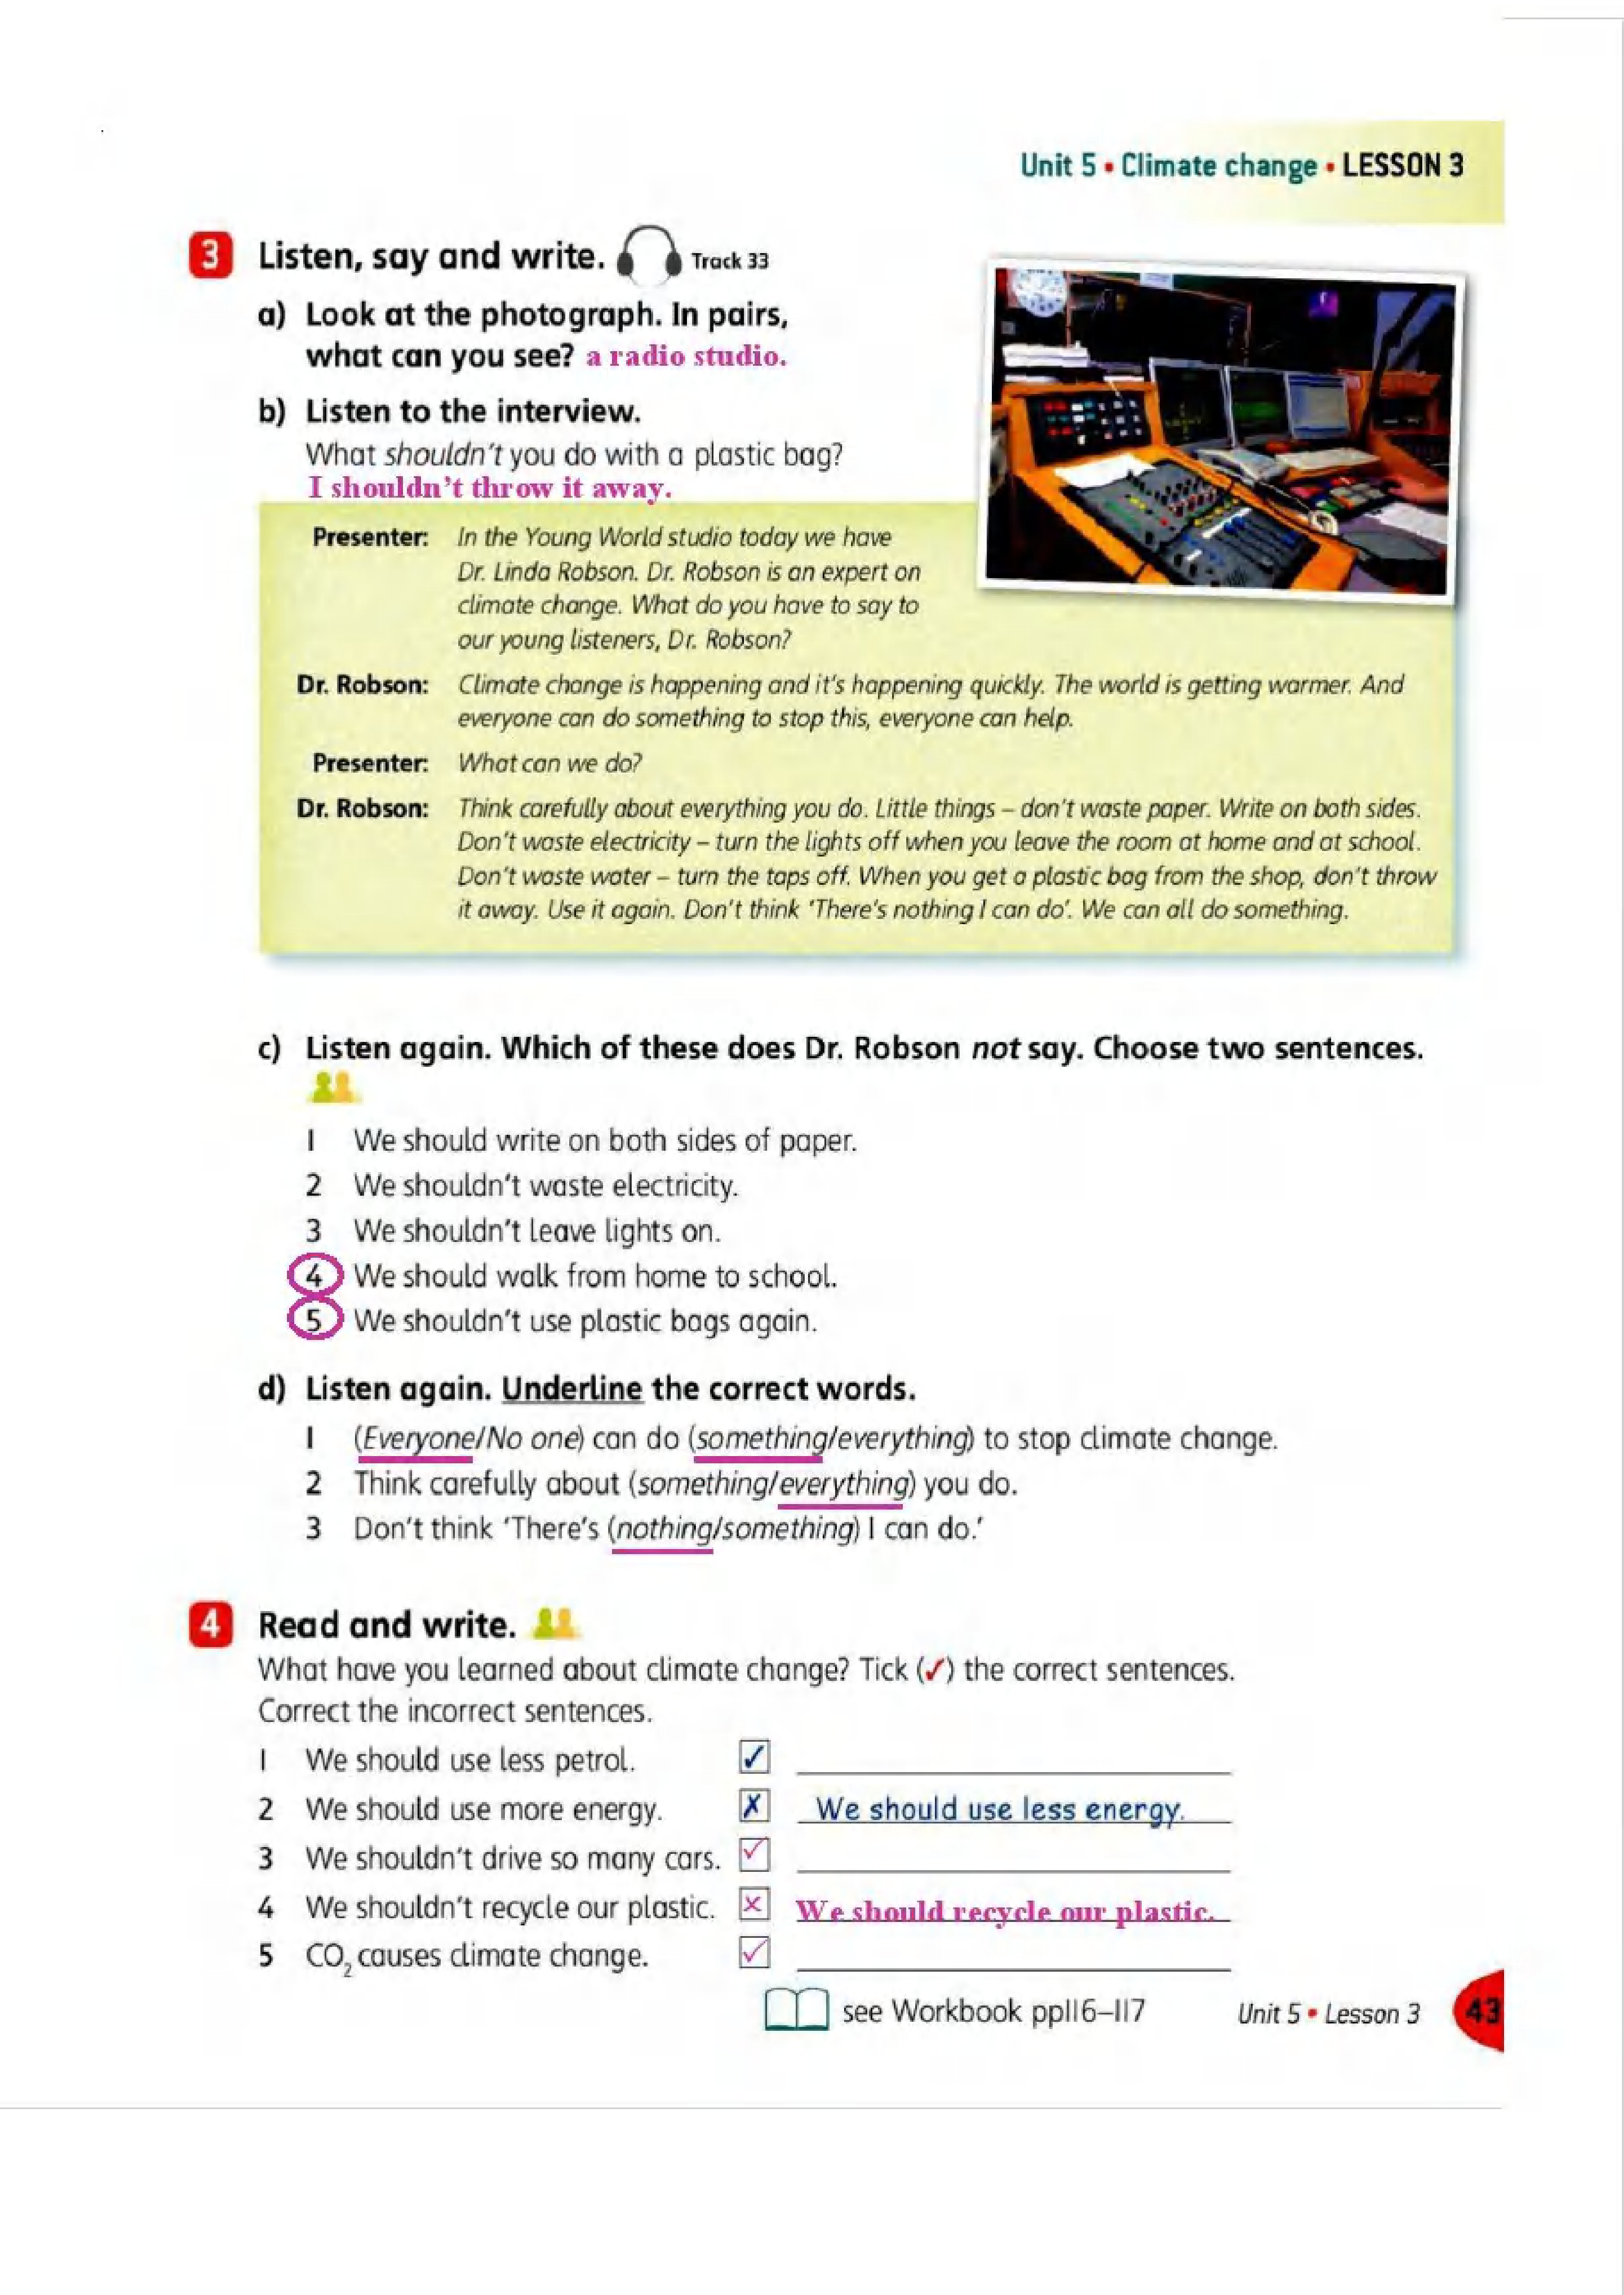 Unit 5 • Climate change • LESSON 3
3 Listen, say and write. Track 33
a) Look at the photograph. In pairs,
what can you see? a radio studio.
b) Listen to the interview.
What shouldn't you do with a plastic bag?
I shouldn't throw it away.
Presenter: In the Young World studio today we have
Dr. Linda Robson. Dr. Robson is an expert on
climate change. What do you have to say to
our young listeners, Dr. Robson?
Dr. Robson: Climate change is happening and it's happening quickly. The world is getting warmer. And
everyone can do something to stop this, everyone can help.
Presenter: What can we do?
Dr. Robson: Think carefully about everything you do. Little things – don't waste paper. Write on both sides.
Don't waste electricity – turn the lights off when you leave the room at home and at school.
Don't waste water – turn the taps off. When you get a plastic bag from the shop, don't throw
it away. Use it again. Don't think 'There's nothing I can do'. We can all do something.
c) Listen again. Which of these does Dr. Robson not say. Choose two sentences.
1 We should write on both sides of paper.
2 We shouldn't waste electricity.
3 We shouldn't leave lights on.
4 We should walk from home to school.
5 We shouldn't use plastic bags again.
d) Listen again. Underline the correct words.
1 (Everyone/No one) can do (something/everything) to stop climate change.
2 Think carefully about (something/everything) you do.
3 Don't think 'There's (nothing/something) I can do.'
4 Read and write.
What have you learned about climate change? Tick (✓) the correct sentences.
Correct the incorrect sentences.
1 We should use less petrol. ✓
2 We should use more energy. ✗ We should use less energy.
3 We shouldn't drive so many cars. ✓
4 We shouldn't recycle our plastic. ✗ We should recycle our plastic.
5 CO₂ causes climate change. ✓
see Workbook pp116–117 Unit 5 • Lesson 3 43